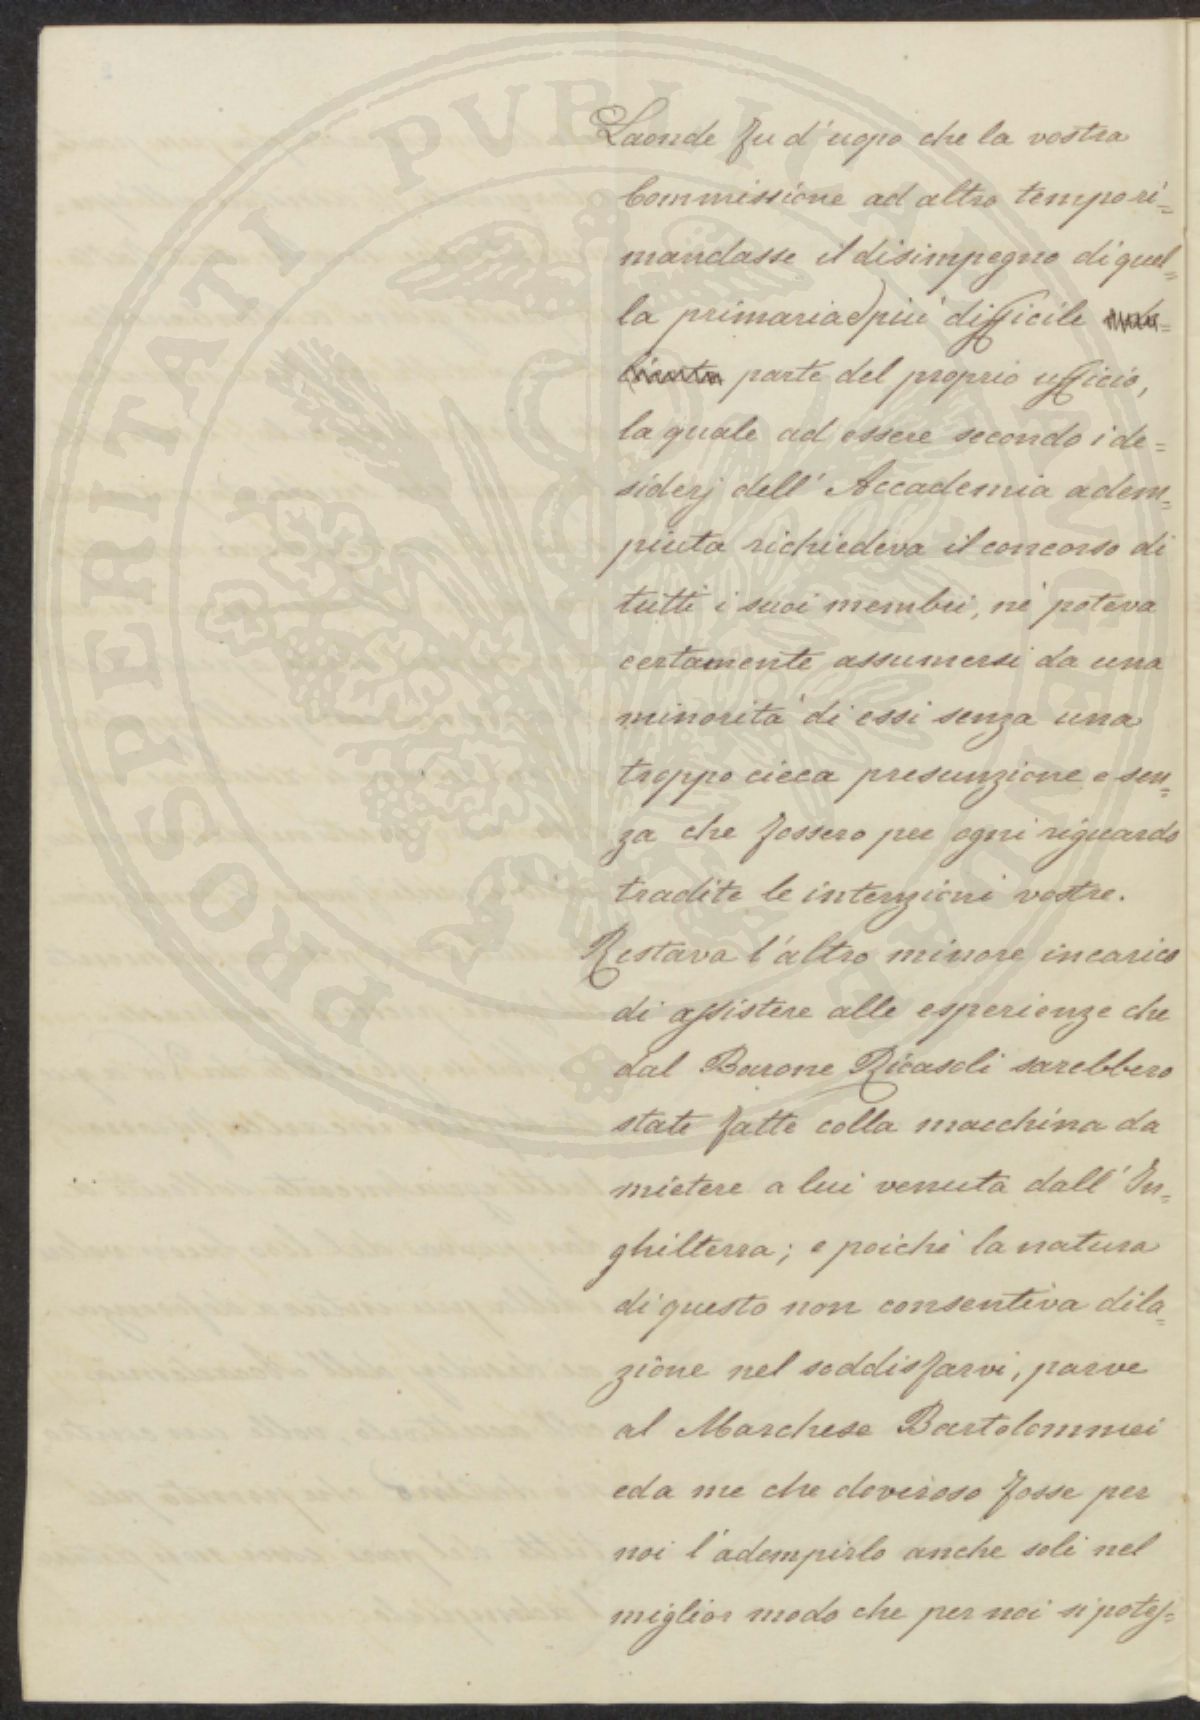 PROSPERITATI PUBLICAE AUGENDAE
Laonde fu d'uopo che la vostra
Commissione ad altro tempo ri=
mandasse il disimpegno di quel=
la primaria e più difficile
parte del proprio ufficio,
la quale ad essere secondo i de=
siderj dell' Accademia adem=
piuta richiedeva il concorso di
tutti i suoi membri, nè poteva
certamente assumersi da una
minorità di essi senza una
troppo cieca presunzione e sen=
za che fossero per ogni riguardo
tradite le intenzioni vostre.
Restava l'altro minore incarico
di assistere alle esperienze che
dal Barone Ricasoli sarebbero
state fatte colla macchina da
mietere a lui venuta dall' In=
ghilterra; e poichè la natura
di questo non consentiva dila=
zione nel soddisfarvi, parve
al Marchese Bartolommei
ed a me che doveroso fosse per
noi l'adempirlo anche soli nel
miglior modo che per noi si potes=